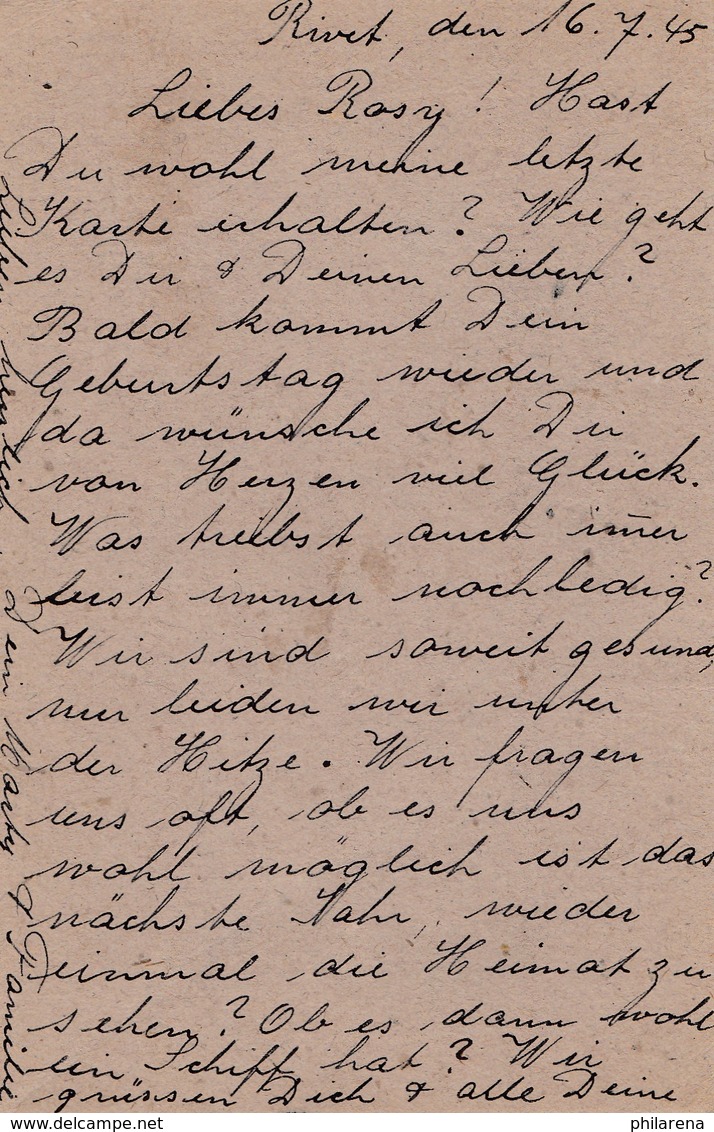 Rivet, den 16.7.45
Liebes Rosy! Hast
Du wohl meine letzte
Karte erhalten? Wie geht
es Dir & Deinen Lieben?
Bald kommt Dein
Geburtstag wieder und
da wünsche ich Dir
von Herzen viel Glück.
Was treibst auch im̅er
bist immer noch ledig?
Wir sind soweit gesund,
nur leiden wir unter
der Hitze. Wir fragen
uns oft, ob es uns
wohl möglich ist das
nächste Jahr, wieder
einmal die Heimat zu
sehen? Ob es dann wohl
ein Schiff hat? Wir
grüssen Dich & alle Deine
Lieben herzlich. Dein Marty & Familie
delcampe.net
philarena